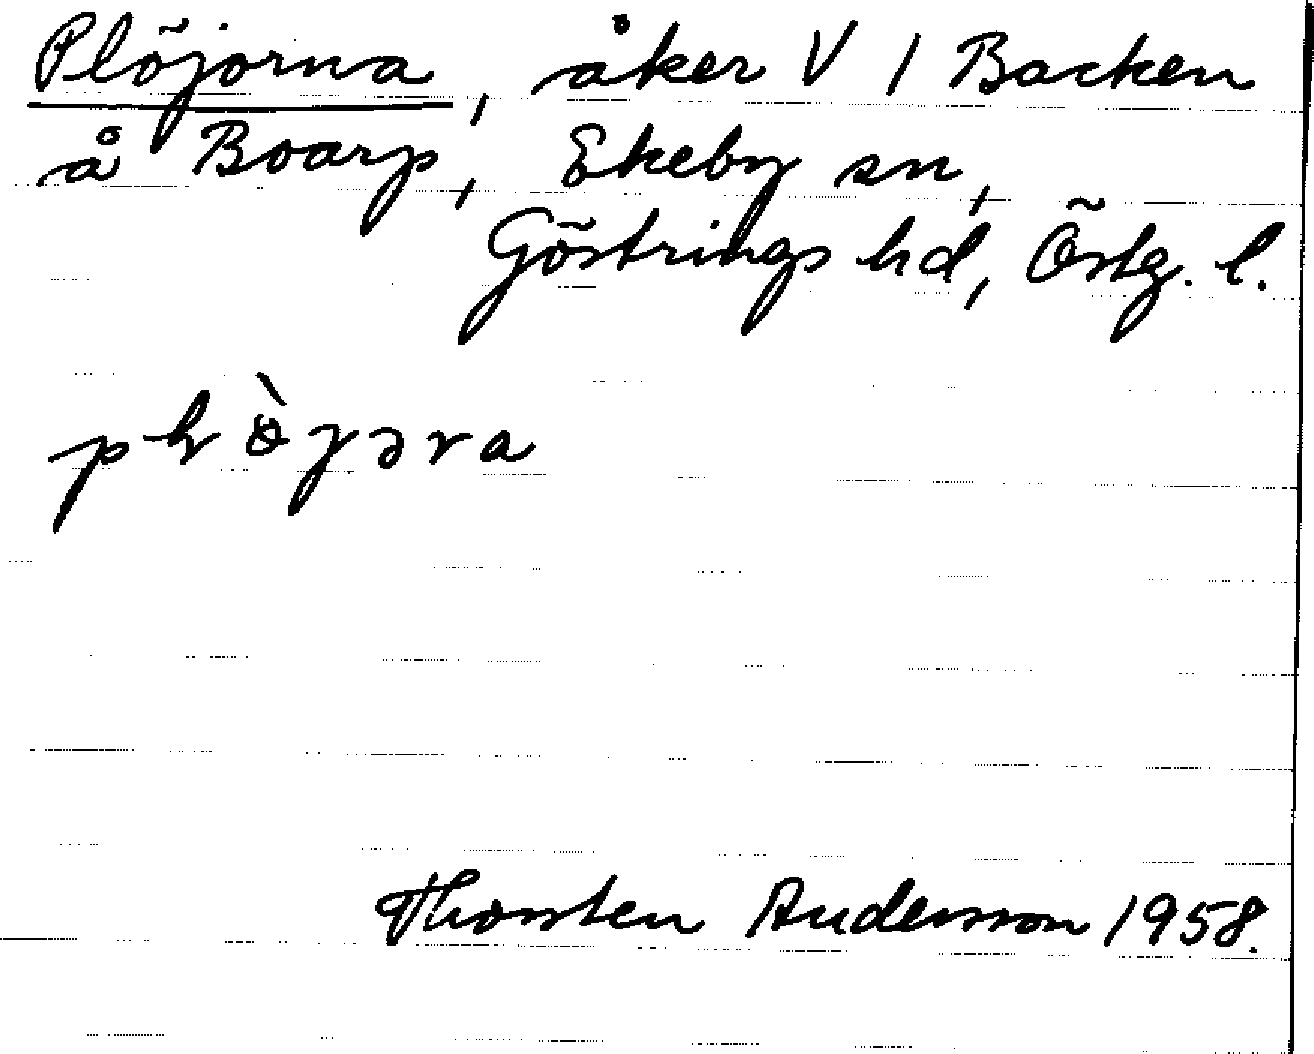 Plöjorna, åker V / Backen
å Boarp, Ekeby sn,
Göstrings hd, Östg. l.
Thorsten Andersson 1958.